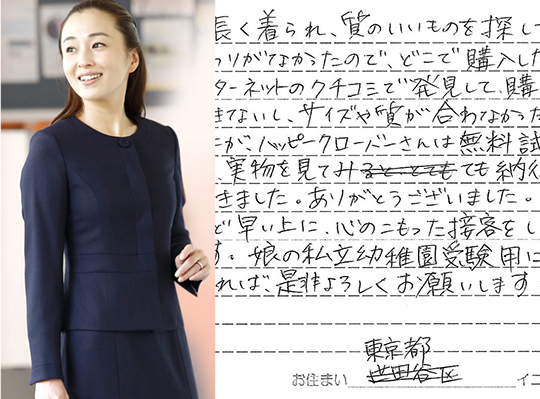 長く着られ、質のいいものを探し
つりがなかったので、どこで購入した
ターネットのクチコミで発見して、購
きてないし、サイズや質が合わなかった
が、ハッピークローバーさんは無料試
、実物を見てみるととてもても納得
きました。ありがとうございました。
ど早い上に、心のこもった接客をし
す。娘の私立幼稚園受験用に
れば、是非よろしくお願いします
東京都
お住まい 世田谷区 イニ